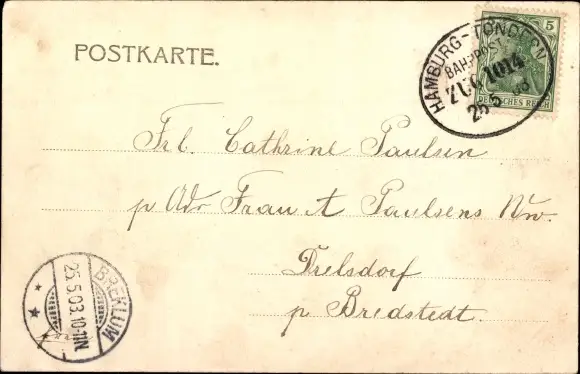 POSTKARTE.
5
DEUTSCHES REICH
HAMBURG-TONDERN
BAHNPOST
ZUG 1014
25 5 03
Frl. Cathrine Paulsen
p Adr Frau A Paulsens Ww.
Drelsdorf
p Bredstedt.
BREKLUM
25.5.03.10-11N.
* *